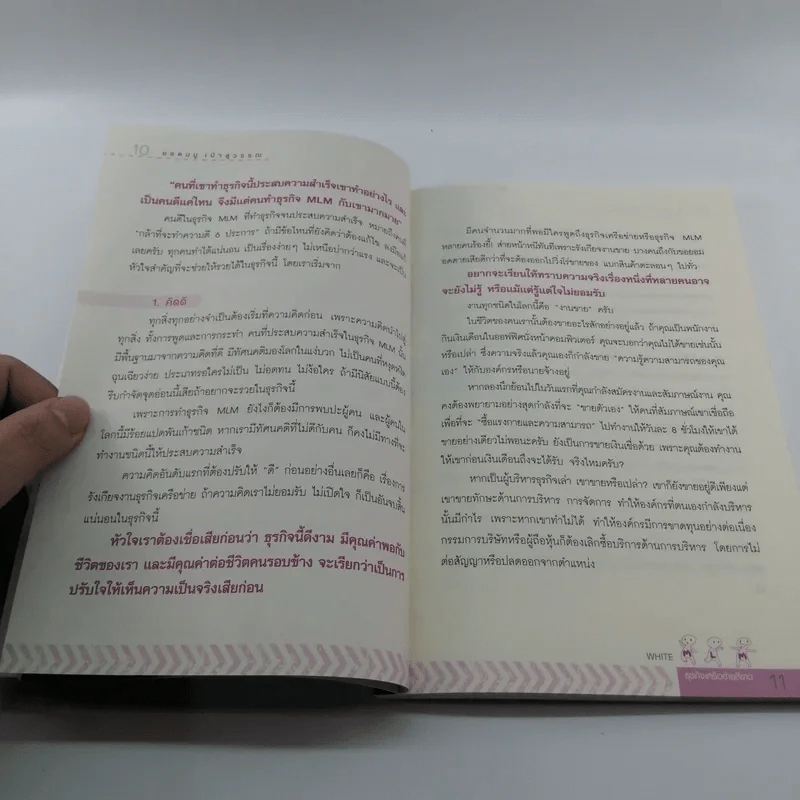 10 ชรตมนู เปาสุวรรณ
"คนที่เขาทำธุรกิจนี้ประสบความสำเร็จเขาทำอย่างไร และ
เป็นคนดีแค่ไหน จึงมีแต่คนทำธุรกิจ MLM กับเขามากมาย"
คนดีในธุรกิจ MLM ที่ทำธุรกิจจนประสบความสำเร็จ หมายถึงคนที่
"กล้าที่จะทำความดี 6 ประการ" ถ้ามีข้อไหนที่ยังคิดว่าต้องแก้ไข ลงมือแก้
เลยครับ ทุกคนทำได้แน่นอน เป็นเรื่องง่ายๆ ไม่เหนือบ่ากว่าแรง และจะเป็น
หัวใจสำคัญที่จะช่วยให้รวยได้ในธุรกิจนี้ โดยเราเริ่มจาก
1. คิดดี
ทุกสิ่งทุกอย่างจำเป็นต้องเริ่มที่ความคิดก่อน เพราะความคิดนำไปสู่
ทุกสิ่ง ทั้งการพูดและการกระทำ คนที่ประสบความสำเร็จในธุรกิจ MLM นั้น
มีพื้นฐานมาจากความคิดที่ดี มีทัศนคติมองโลกในแง่บวก ไม่เป็นคนที่หงุดหงิด
ฉุนเฉียวง่าย ประเภทรอใครไม่เป็น ไม่อดทน ไม่ง้อใคร ถ้ามีนิสัยแบบนี้ต้อง
รีบกำจัดจุดอ่อนนี้เสียถ้าอยากจะรวยในธุรกิจนี้
เพราะการทำธุรกิจ MLM ยังไงก็ต้องมีการพบปะผู้คน และผู้คนใน
โลกนี้มีร้อยแปดพันเก้าชนิด หากเรามีทัศนคติที่ไม่ดีกับคน ก็คงไม่มีทางที่จะ
ทำงานชนิดนี้ให้ประสบความสำเร็จ
ความคิดอันดับแรกที่ต้องปรับให้ "ดี" ก่อนอย่างอื่นเลยก็คือ เรื่องการ
รังเกียจงานธุรกิจเครือข่าย ถ้าความคิดเราไม่ยอมรับ ไม่เปิดใจ ก็เป็นอันจบสิ้น
แน่นอนในธุรกิจนี้
หัวใจเราต้องเชื่อเสียก่อนว่า ธุรกิจนี้ดีงาม มีคุณค่าพอกับ
ชีวิตของเรา และมีคุณค่าต่อชีวิตคนรอบข้าง จะเรียกว่าเป็นการ
ปรับใจให้เห็นความเป็นจริงเสียก่อน
มีคนจำนวนมากที่พอมีใครพูดถึงธุรกิจเครือข่ายหรือธุรกิจ MLM
หลายคนร้องยี้! ส่ายหน้าหนีทันทีเพราะรังเกียจงานขาย บางคนถึงกับขอยอม
อดตายเสียดีกว่าที่จะต้องออกไปวิ่งเร่ขายของ แบกสินค้าตะลอนๆ ไปทั่ว
อยากจะเรียนให้ทราบความจริงเรื่องหนึ่งที่หลายคนอาจ
จะยังไม่รู้ หรือแม้แต่รู้แต่ใจไม่ยอมรับ
งานทุกชนิดในโลกนี้คือ "งานขาย" ครับ
ในชีวิตของคนเรานั้นต้องขายอะไรสักอย่างอยู่แล้ว ถ้าคุณเป็นพนักงาน
กินเงินเดือนในออฟฟิศนั่งหน้าคอมพิวเตอร์ คุณจะบอกว่าคุณไม่ได้ขายเช่นนั้น
หรือเปล่า ซึ่งความจริงแล้วคุณเองก็กำลังขาย "ความรู้ความสามารถของคุณ
เอง" ให้กับองค์กรหรือนายจ้างอยู่
หากลองนึกย้อนไปในวันแรกที่คุณกำลังสมัครงานและสัมภาษณ์งาน คุณ
คงต้องพยายามอย่างสุดกำลังที่จะ "ขายตัวเอง" ให้คนที่สัมภาษณ์เขาเชื่อถือ
เพื่อที่จะ "ซื้อแรงกายและความสามารถ" ไปทำงานให้วันละ 8 ชั่วโมงให้เขาได้
ขายอย่างเดียวไม่พอนะครับ ยังเป็นการขายเงินเชื่อด้วย เพราะคุณต้องทำงาน
ให้เขาก่อนเงินเดือนถึงจะได้รับ จริงไหมครับ?
หากเป็นผู้บริหารธุรกิจเล่า เขาขายหรือเปล่า? เขาก็ยังขายอยู่ดีเพียงแต่
เขาขายทักษะด้านการบริหาร การจัดการ ทำให้องค์กรที่ตนเองกำลังบริหาร
นั้นมีกำไร เพราะหากเขาทำไม่ได้ ทำให้องค์กรมีการขาดทุนอย่างต่อเนื่อง
กรรมการบริษัทหรือผู้ถือหุ้นก็ต้องเลิกซื้อบริการด้านการบริหาร โดยการไม่
ต่อสัญญาหรือปลดออกจากตำแหน่ง
WHITE M L M
ธุรกิจเครือข่ายสีขาว 11